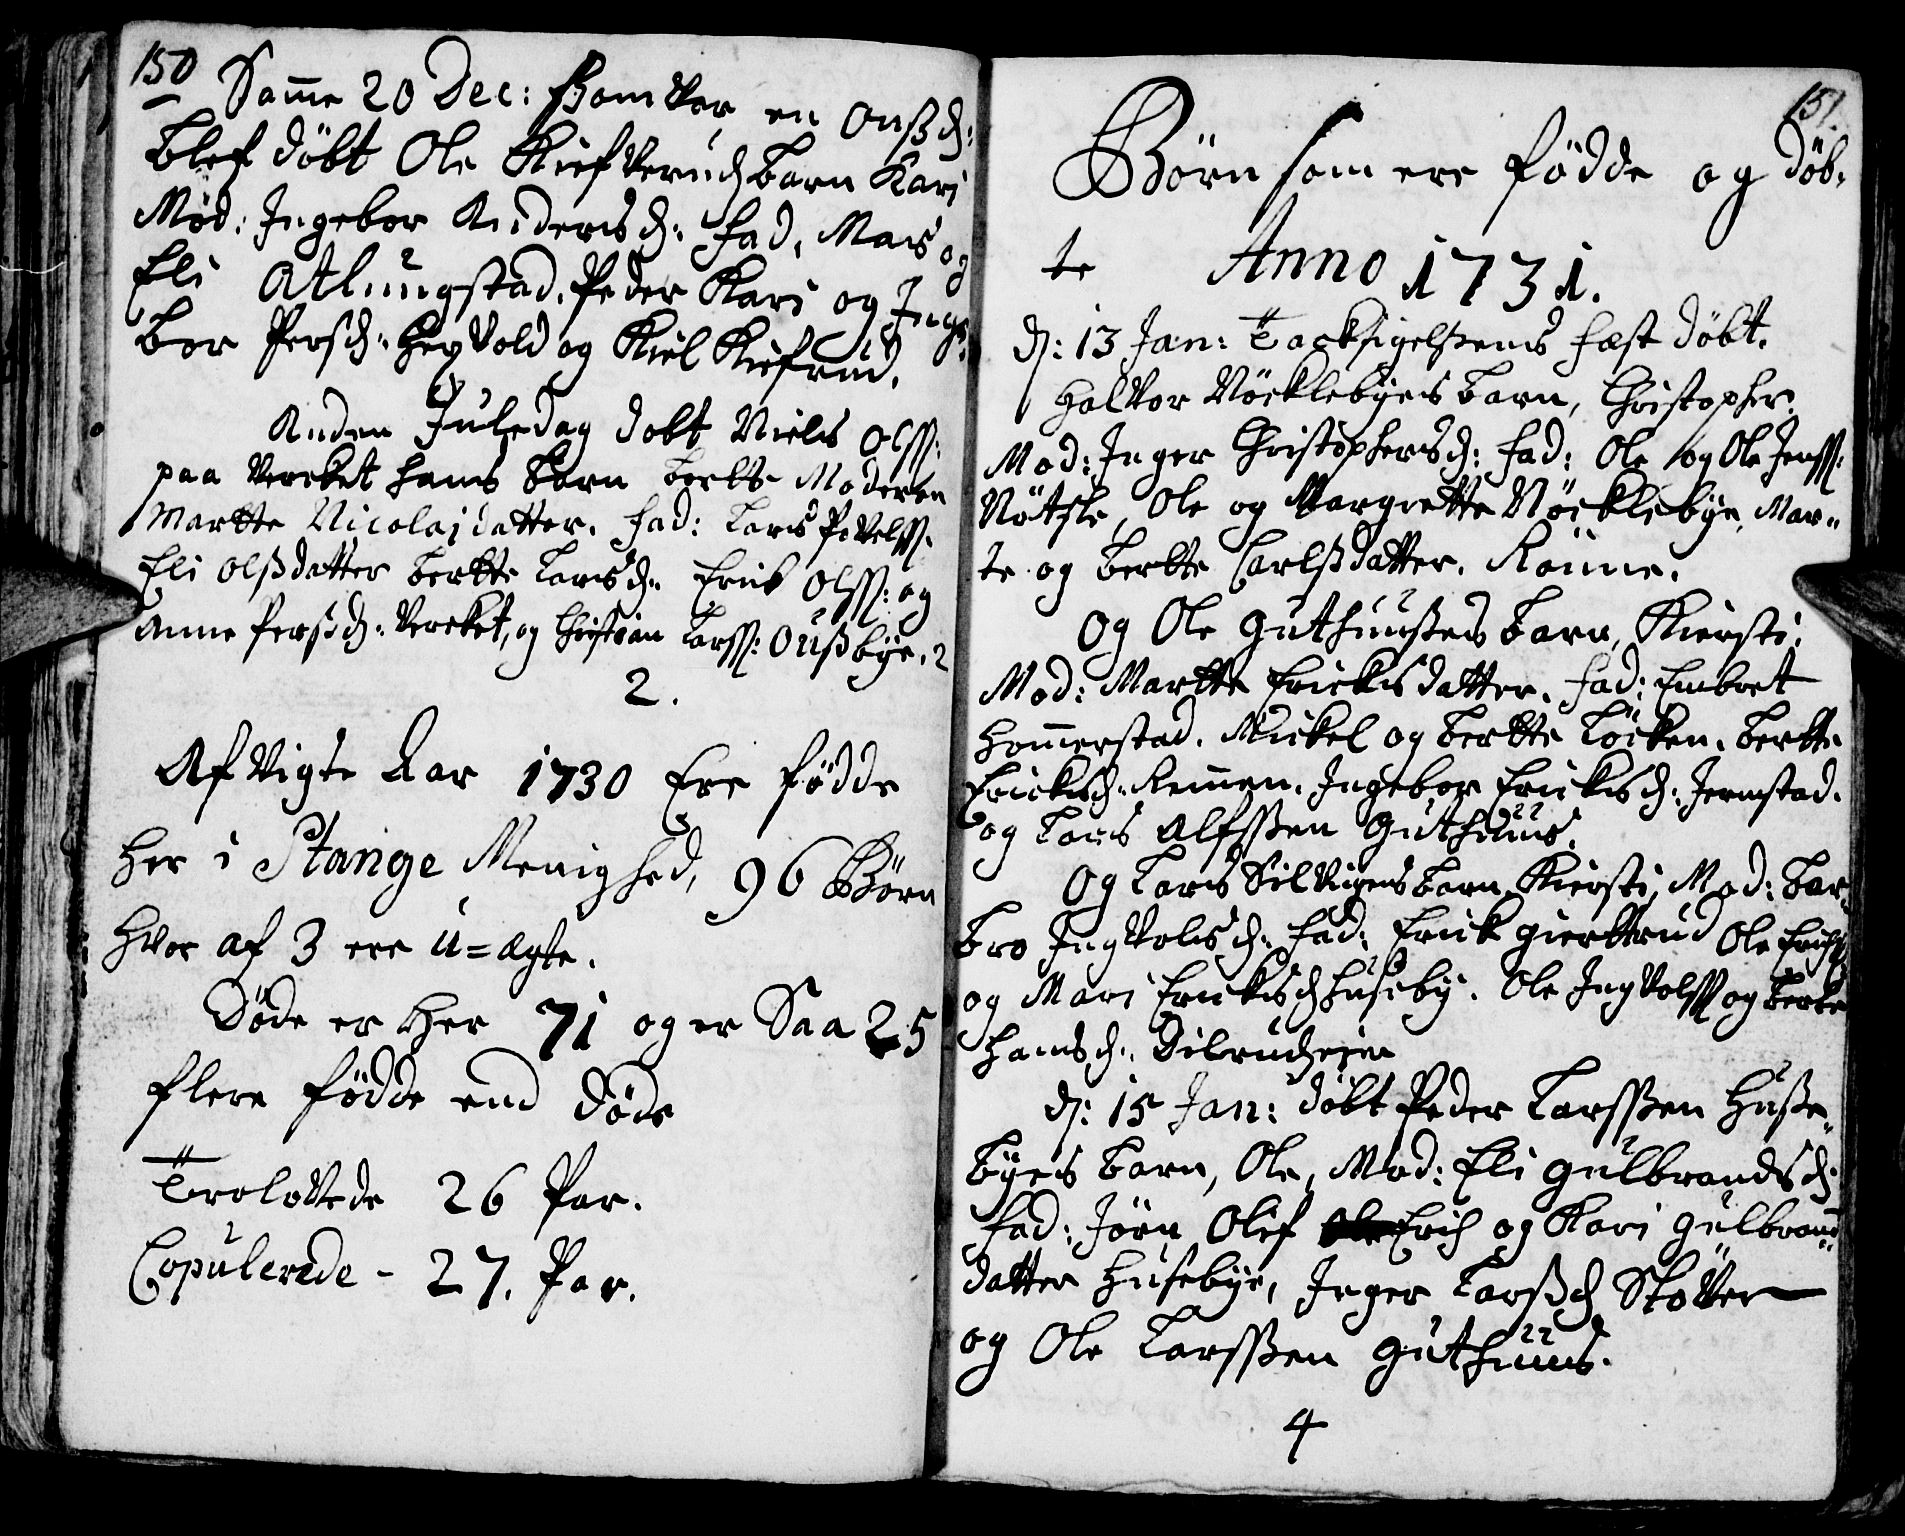 150
Sam̄e 20 Dec: som var en Onßd:
blef döbt Ole Kiefverudz barn Kari
Mød: Ingebor Andersd: fad, Mars og
Eli Atlungstad, Peder Kari og Inge-
bor Persd: Hegvold og Kiel Kiefrud.
Anden Juledag døbt Niels Olss:
paa Verket hans barn berthe Moderen
Marthe Nicolajdatter. fad: Lars Povelss.
Eli Olßdatter berthe Larsd: Erik Olss: og
Anne Persd: Verket, og Christian Larss: Oußbye. 2
2.
Af vigte Aar 1730 Ere fødde
her i Stange Menighed, 96 Børn
hvor af 3 ere u=ægte.
Døde er her 71 og er Saa 25
flere fødde end døde
Trolovede 26 Par.
Copulerede - 27. Par.
151.
Børn som ere fødde og döb-
te Anno 1731.
d: 13 Jan: Tacksigelßens fæst döbt.
Halvor Nöcklebyes barn, Christopher
Mod: Inger Christophersd: fad: Ole og Ole Jenss:
Nötsle, Ole og Margrette Nöcklebye, Mar-
te og berthe Carlsdatter.
Og Ole Guthuußes barn, Kiersti;
Mod: Marthe Ericksdatter. fad: Embret
Hom̄erstad. Mickel og berthe Löcken. berthe
Ericksd: Remmen. Ingebor Ericksd: Jermstad.
og Lars Alfssen Guthuus.
Og Lars Silvigens barn Kiersti, Mod: bar-
bro Ingvolsd: fad: Erick Gierttrud Ole Erichs
og Mari Ericksd Huseby. Ole Ingvolss og berte
Hansd: Dilrudzeien
d: 15 Jan: döbt Peder Larssen Huße-
byes barn, Ole, Mod: Eli Gulbrandsd:
fad: Jörn Olef Erich og Kari Gulbrands-
datter Husebye, Inger Larßd Stöver
og Ole Larssen Guthuus.
4